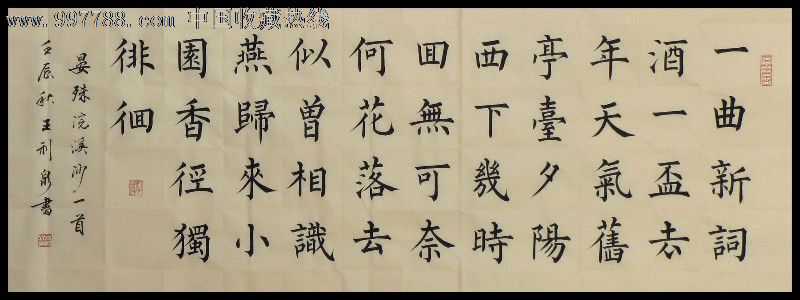 www.997788.com 中国收藏热线
一曲新詞
酒一盃去
年天氣舊
亭臺夕陽
西下幾時
回無可奈
何花落去
似曾相識
燕歸來小
園香徑獨
徘徊
晏殊浣溪沙一首
壬辰秋王利泉書